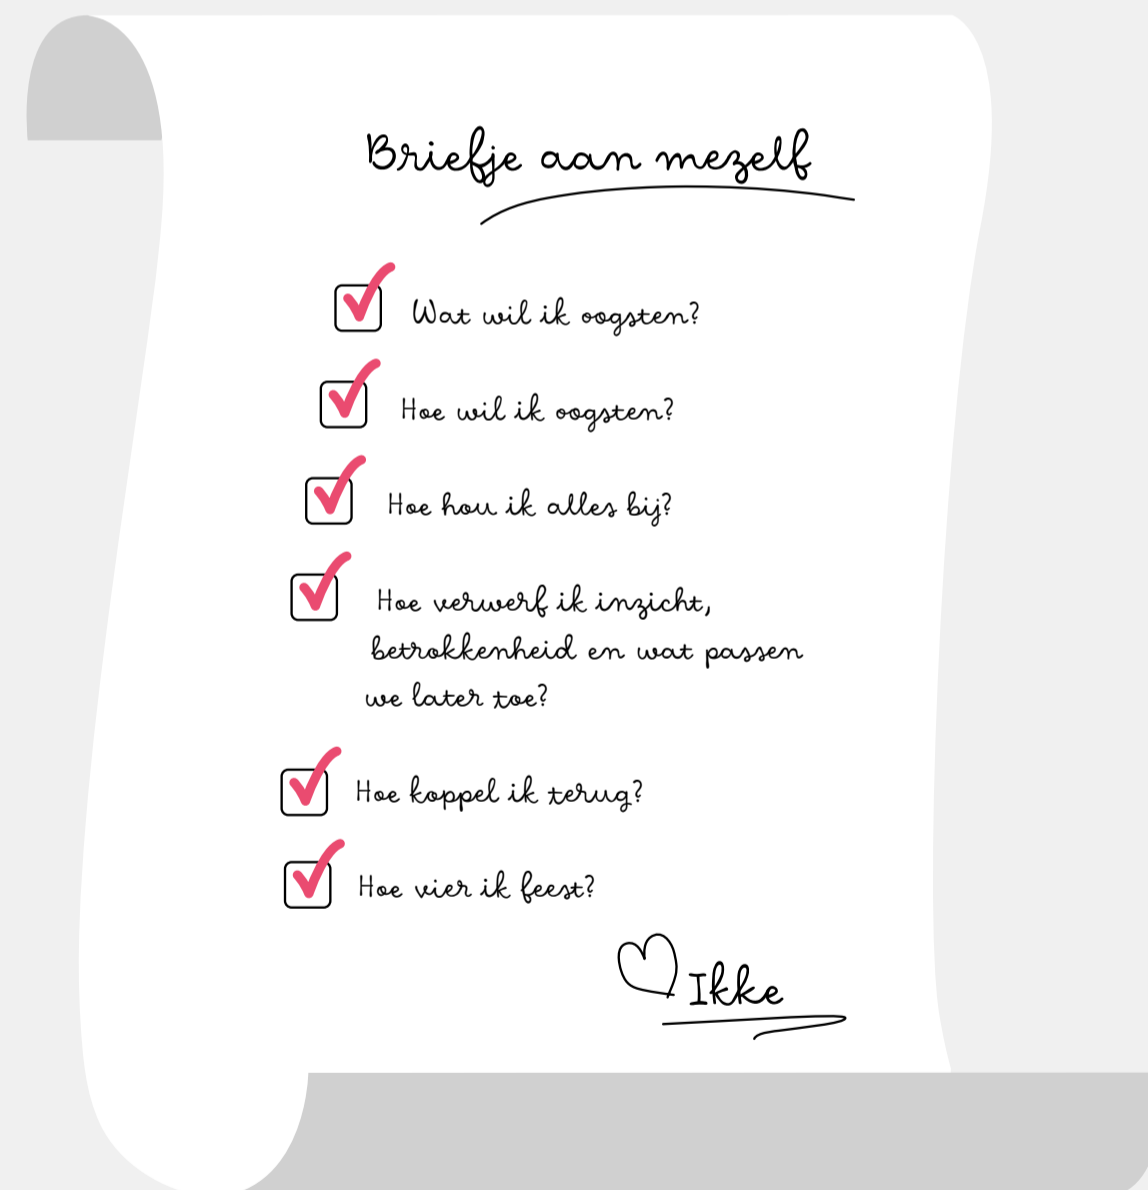 Briefje aan mezelf
Wat wil ik oogsten?
Hoe wil ik oogsten?
Hoe hou ik alles bij?
Hoe verwerf ik inzicht,
betrokkenheid en wat passen
we later toe?
Hoe koppel ik terug?
Hoe vier ik feest?
Ikke